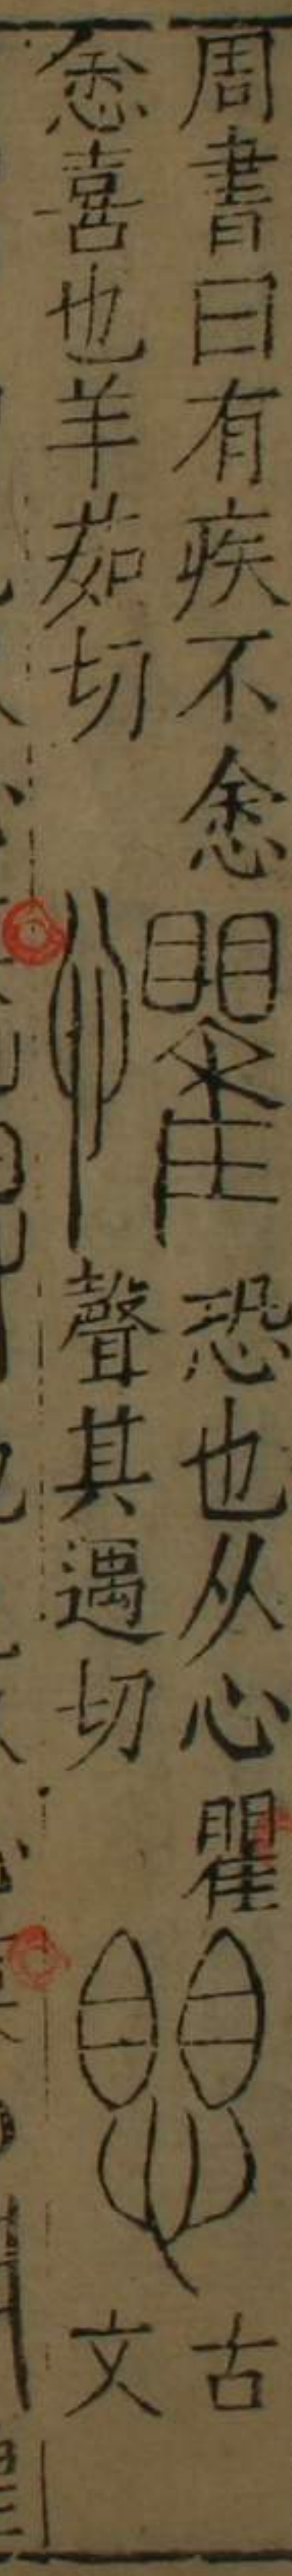 周書曰有疾不悆
悆喜也羊茹切
懼
恐也从心瞿
聲其遇切
𢥠
古
文